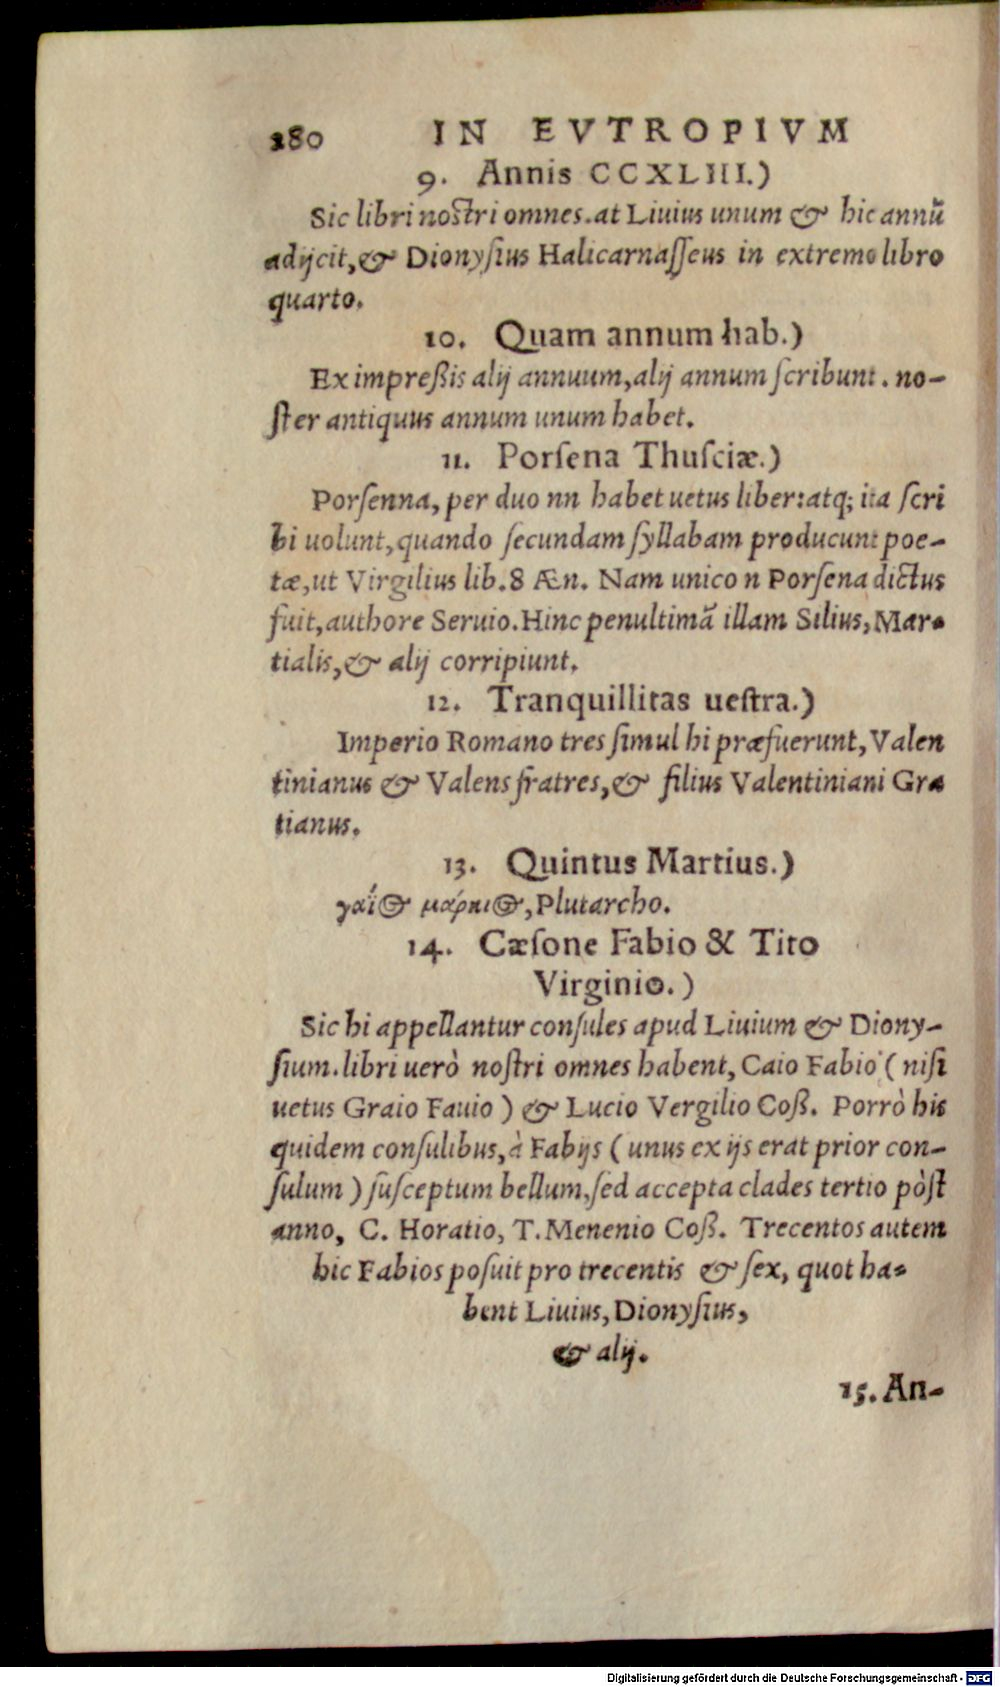 280 IN EVTROPIVM
9. Annis CCXLIII.)
Sic libri nostri omnes. at Liuius unum & hic annũ
adijcit, & Dionyſius Halicarnaſſeus in extremo libro
quarto.
10. Quam annum hab.)
Ex impreßis alij annuum, alij annum ſcribunt. no-
ſter antiquus annum unum habet.
11. Porſena Thuſciæ.)
Porſenna, per duo nn habet uetus liber: atq; ita ſcri
bi uolunt, quando ſecundam ſyllabam producunt poe-
tæ, ut Virgilius lib. 8 Æn. Nam unico n Porſena dictus
fuit, authore Seruio. Hinc penultimã illam Silius, Mar-
tialis, & alij corripiunt.
12. Tranquillitas ueſtra.)
Imperio Romano tres ſimul hi præfuerunt, Valen
tinianus & Valens fratres, & filius Valentiniani Gra
tianus.
13. Quintus Martius.)
γαΐος μάρκιος, Plutarcho.
14. Cæſone Fabio & Tito
Virginio.)
Sic hi appellantur conſules apud Liuium & Diony-
ſium. libri uerò noſtri omnes habent, Caio Fabio (niſi
uetus Graio Fauio) & Lucio Vergilio Coß. Porrò his
quidem conſulibus, à Fabijs (unus ex ijs erat prior con-
ſulum) ſuſceptum bellum, ſed accepta clades tertio pòſt
anno, C. Horatio, T. Menenio Coß. Trecentos autem
hic Fabios poſuit pro trecentis & ſex, quot ha-
bent Liuius, Dionyſius,
& alij.
15. An-
Digitalisierung gefördert durch die Deutsche Forschungsgemeinschaft - DFG